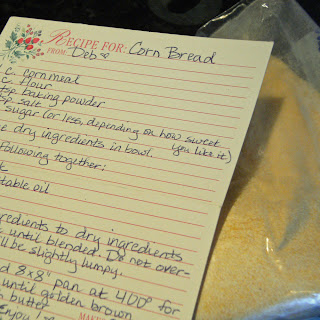 RECIPE FOR: Corn Bread
FROM: Deb
c. cornmeal
c. flour
tsp. baking powder
salt
sugar (or less, depending on how sweet
you like it)
dry ingredients in bowl.
following together:
table oil
redients to dry ingredients
until blended. Do not over-
ll be slightly lumpy.
8x8" pan at 400° for
until golden brown
butter.
Enjoy!